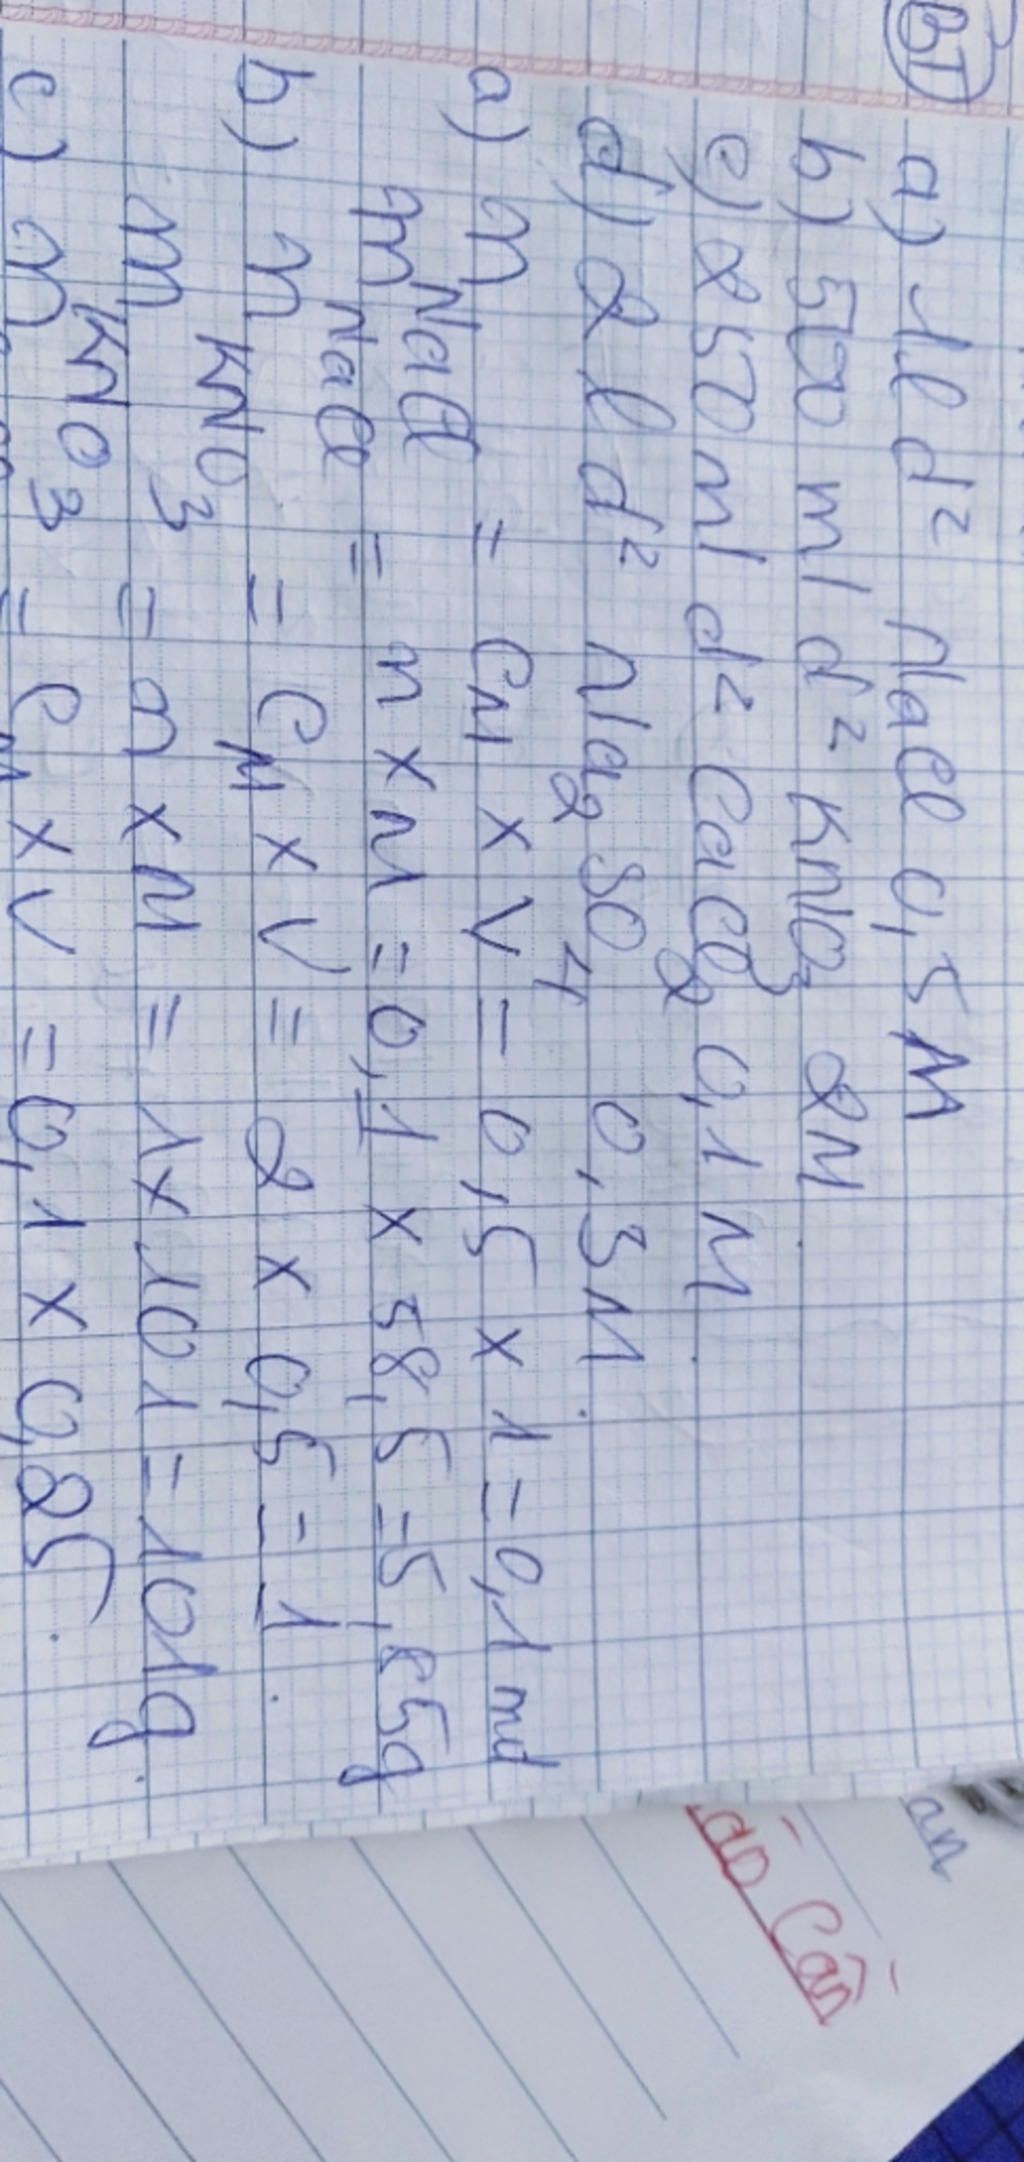 BT
a) 1l d² NaCl 0,5M
b) 500 ml d² KNO3 2M.
c) 250 ml d² CaCl2 0,1M.
d) 2l d² Na2SO4 0,3M.
a) n NaCl = CM x V = 0,5 x 1 = 0,1 mol
m NaCl = n x M = 0,1 x 58,5 = 5,85g
b) n KNO3 = CM x V = 2 x 0,5 = 1.
m KNO3 = n x M = 1 x 101 = 101g.
c) = CM x V = 0,1 x 0,25.
an
Cân